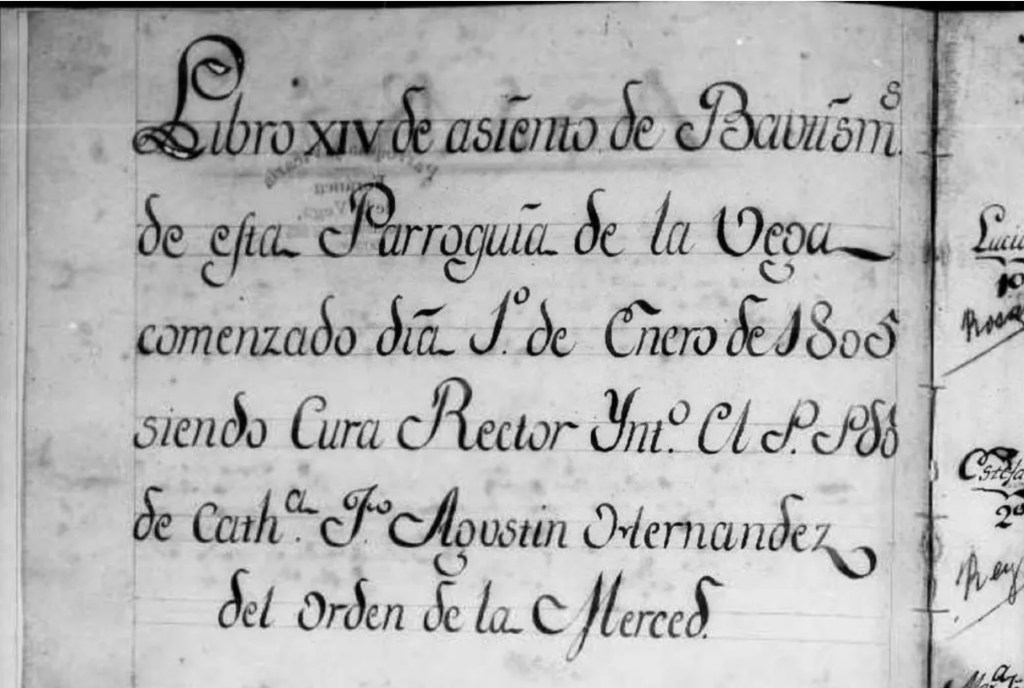 Libro XIV de asiento de Bautism.s
de esta Parroquia de la Vega
comenzado dia 1.o de Enero de 1805
siendo Cura Rector Ynt.o El P. Pdo
de Cath.a Fr. Agustin Hernandez
del Orden de la Merced.
Lucia
10
Rosa
2o
Rey